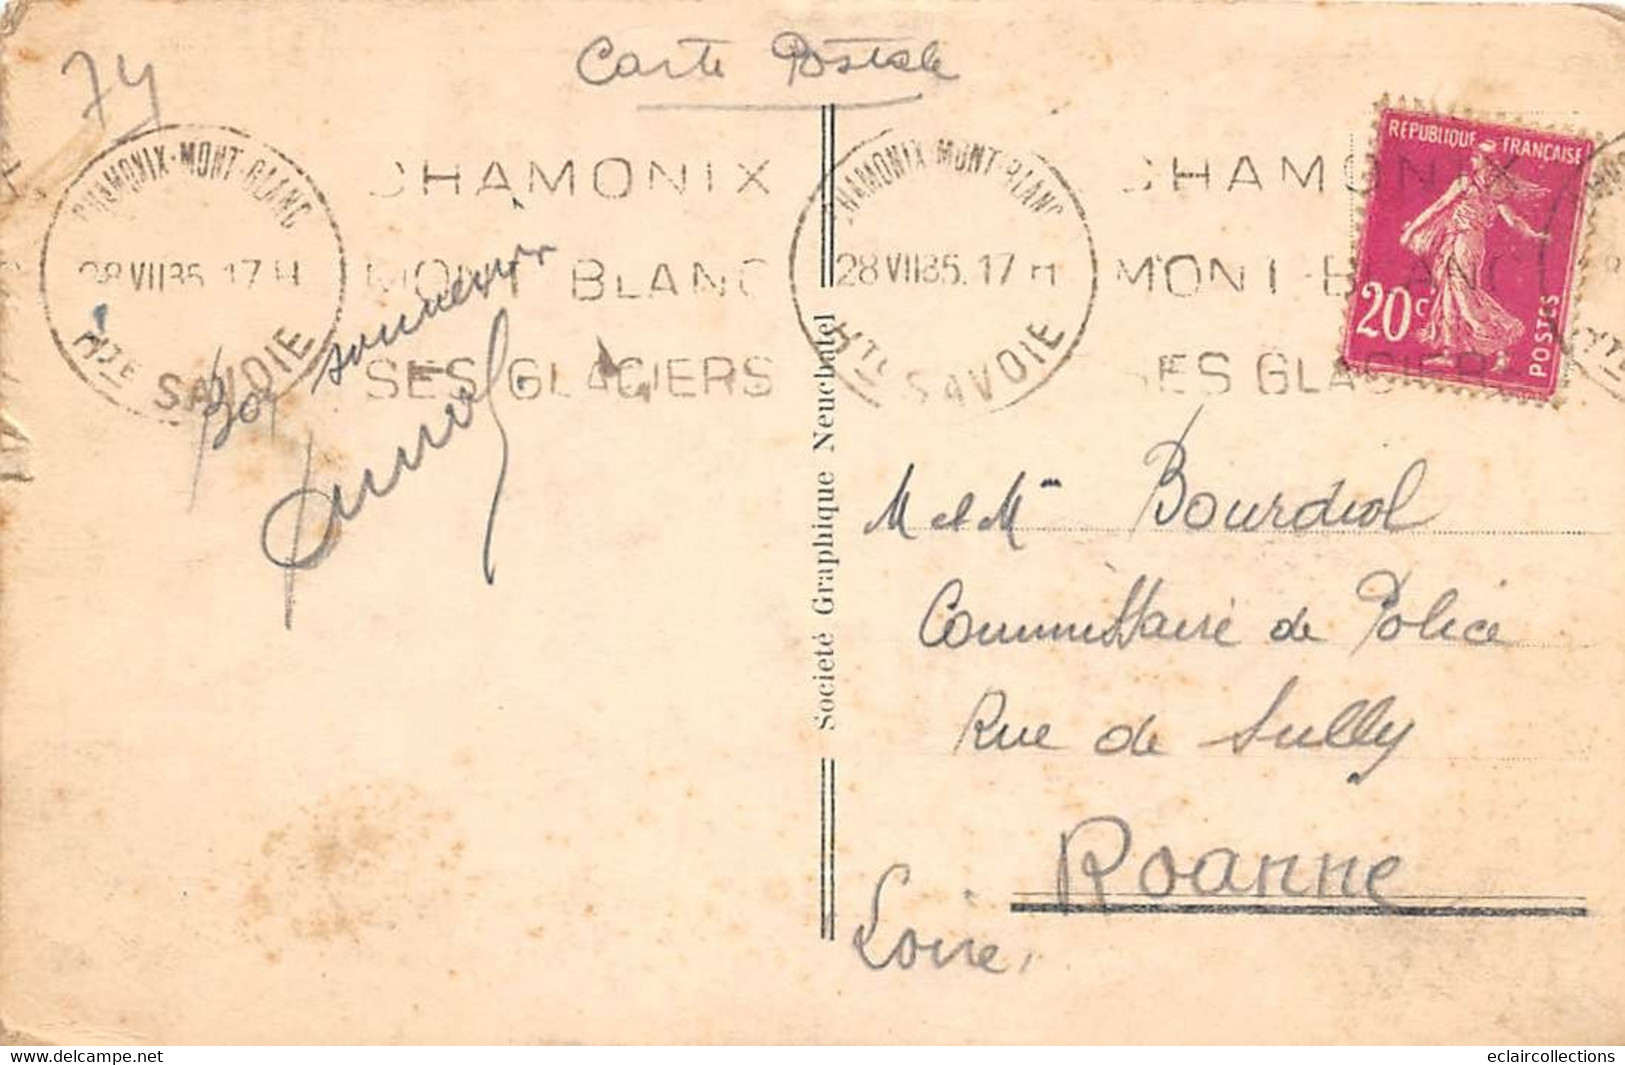 Carte Postale
74
CHAMONIX-MONT-BLANC
28 VII 35. 17 H
Hte SAVOIE
CHAMONIX
MONT-BLANC
SES GLACIERS
CHAMONIX-MONT-BLANC
28 VII 35. 17 H
Hte SAVOIE
CHAMONIX
MONT-BLANC
SES GLACIERS
REPUBLIQUE FRANÇAISE
20c
POSTES
Bon souvenir
Societé Graphique Neuchatel
M et Mme Bourdiol
Commissaire de Police
Rue de Sully
Roanne
Loire.
eclaircollections
delcampe.net